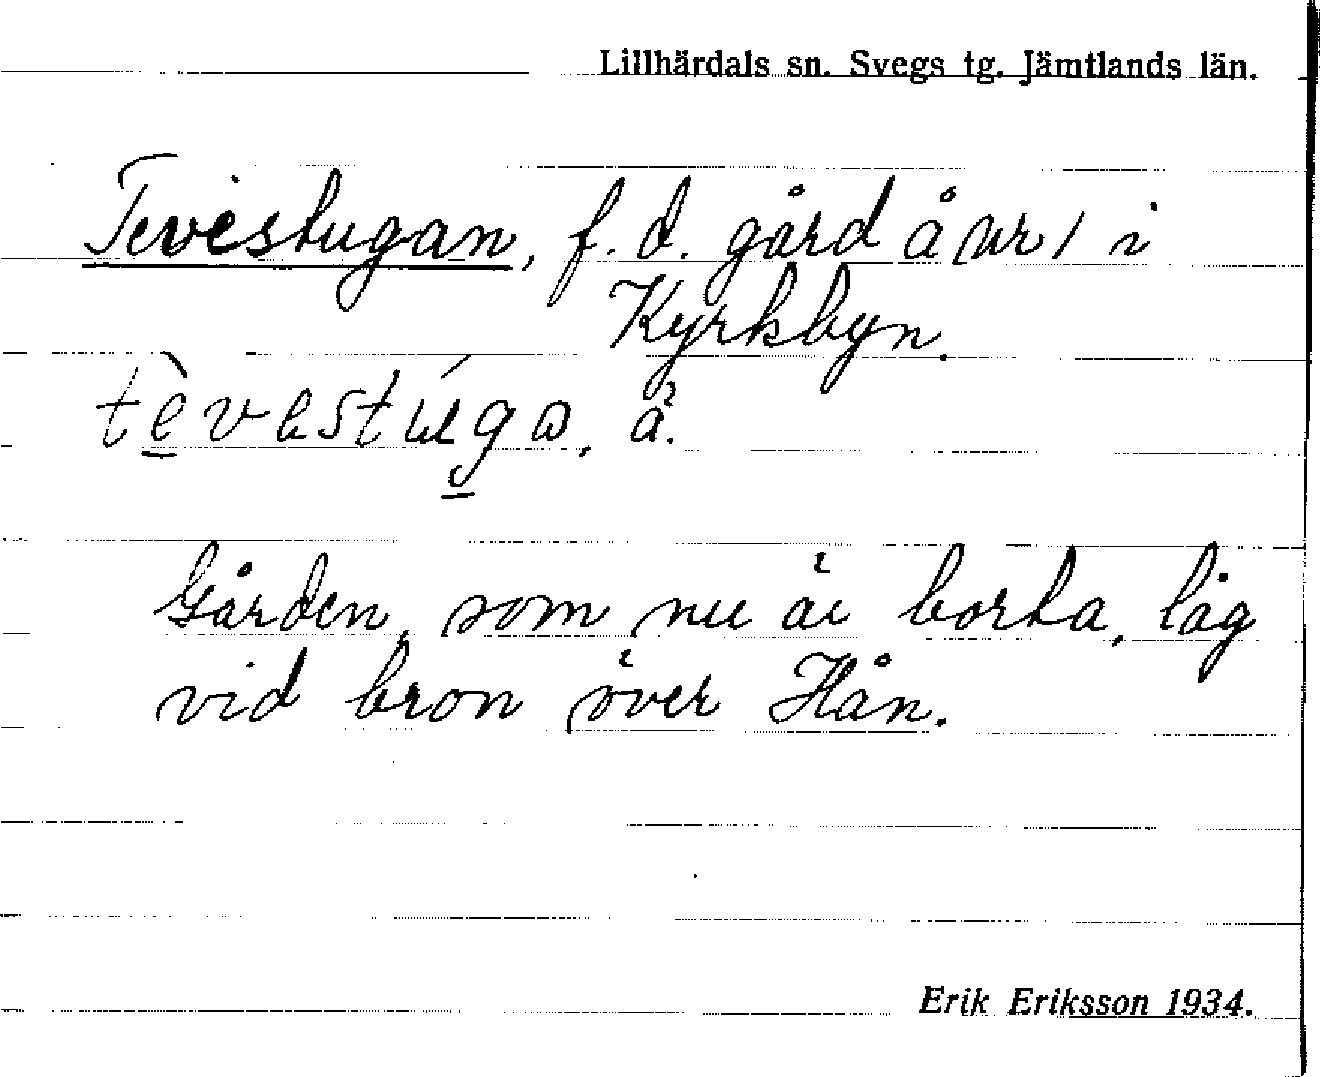 Lillhärdals sn. Svegs tg. Jämtlands län.
Tevestugan, f. d. gård å nr 1 i
Kyrkbyn.
tèvestúgɷ, å.
Gården, som nu är borta, låg
vid bron över Hån.
Erik Eriksson 1934.